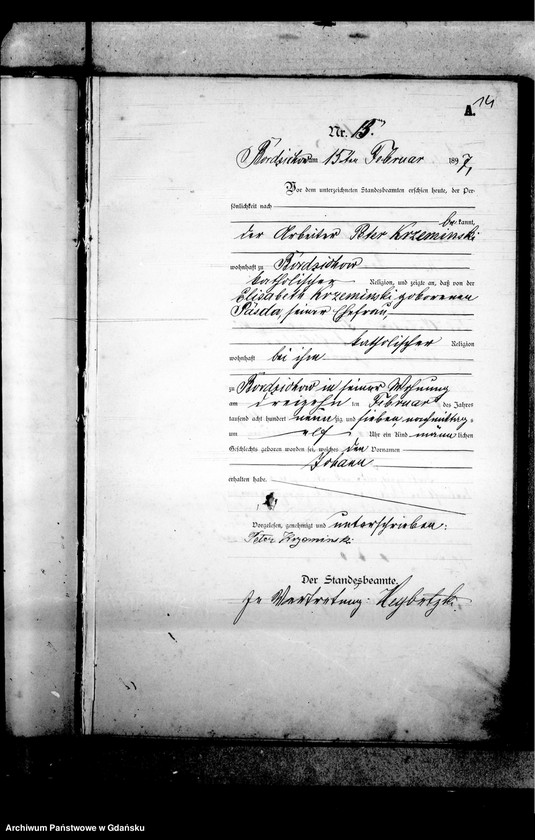 14
A.
Nr. 13.
am 15ten Februar 1897
Vor dem unterzeichneten Standesbeamten erschien heute, der Per-
sönlichkeit nach
be kannt,
der Arbeiter Peter Krzeminski
wohnhaft zu
katholischer Religion, und zeigte an, daß von der
Elisabeth Krzeminski geborenen
seiner Ehefrau,
katholischer Religion
wohnhaft bei ihm
zu in seiner Wohnung
am dreizehn ten Februar des Jahres
tausend acht hundert neun zig und sieben, vormittag s
um elf Uhr ein Kind männ lichen
Geschlechts geboren worden sei, welches den Vornamen
Johann
erhalten habe.
Vorgelesen, genehmigt und unterschrieben:
Peter Krzeminski
Der Standesbeamte.
In Vertretung:
Archiwum Państwowe w Gdańsku